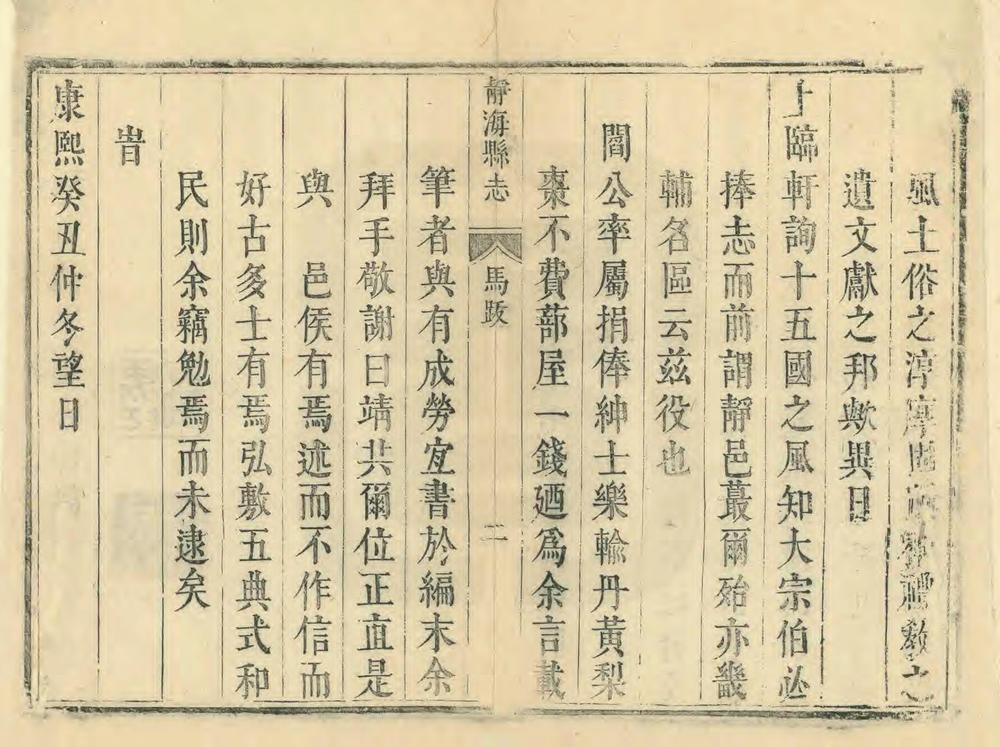 風土俗之淳禮教之
遺文獻之邦歟異日
上臨軒詢十五國之風知大宗伯必
捧志而前謂靜邑蕞爾殆亦畿
輔名區云茲役也
閻公率屬捐俸紳士樂輸丹黃梨
棗不費蔀屋一錢廼為余言載
靜海縣志 馬跋 二
筆者與有成勞宜書於編末余
拜手敬謝曰靖共爾位正直是
與 邑侯有焉述而不作信而
好古多士有焉弘敷五典式和
民則余竊勉焉而未逮矣
旹
康熙癸丑仲冬望日